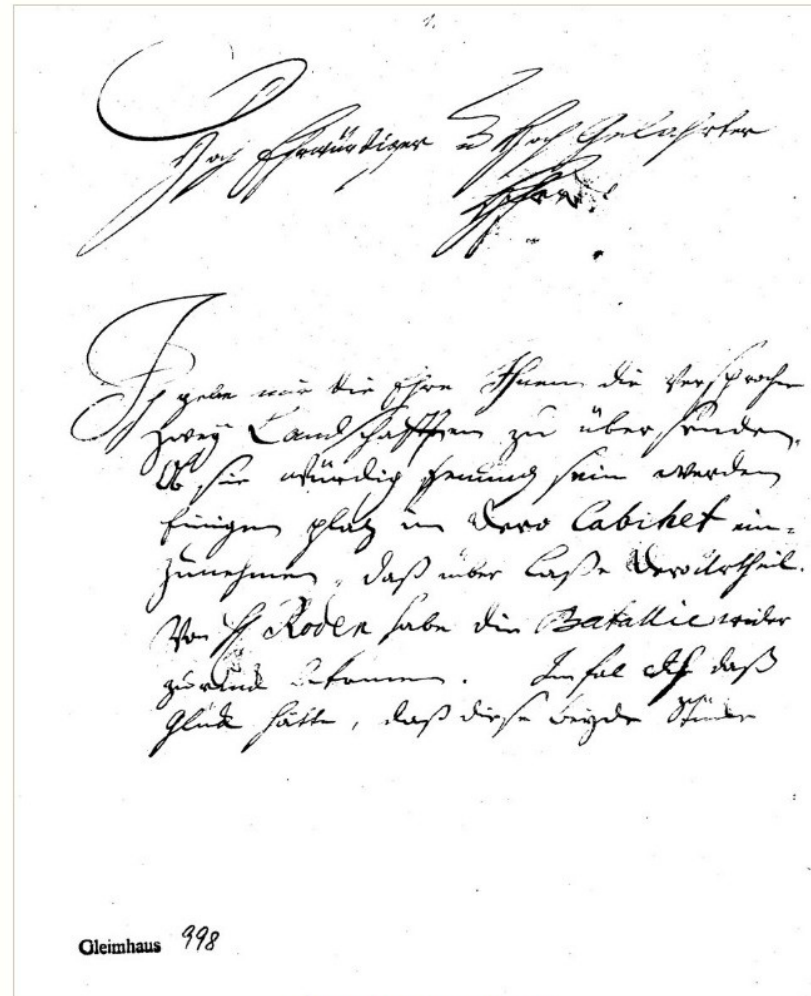 1.
Hoch Ehrwürdiger u Hoch Gelahrter
Herr!
Ich gebe mir die Ehre Ihnen die Versprochen
zwey Landschafften zu über senden,
Ob sie würdig genung sein werden
Einigen platz in Dero Cabinet ein-
zunehmen, daß über laße Dero Urtheil.
Von H Roden habe die Batallie wider
zurück bekomen. Im fal Ich daß
Glück hätte, daß diese beyde Stücke
Gleimhaus 998